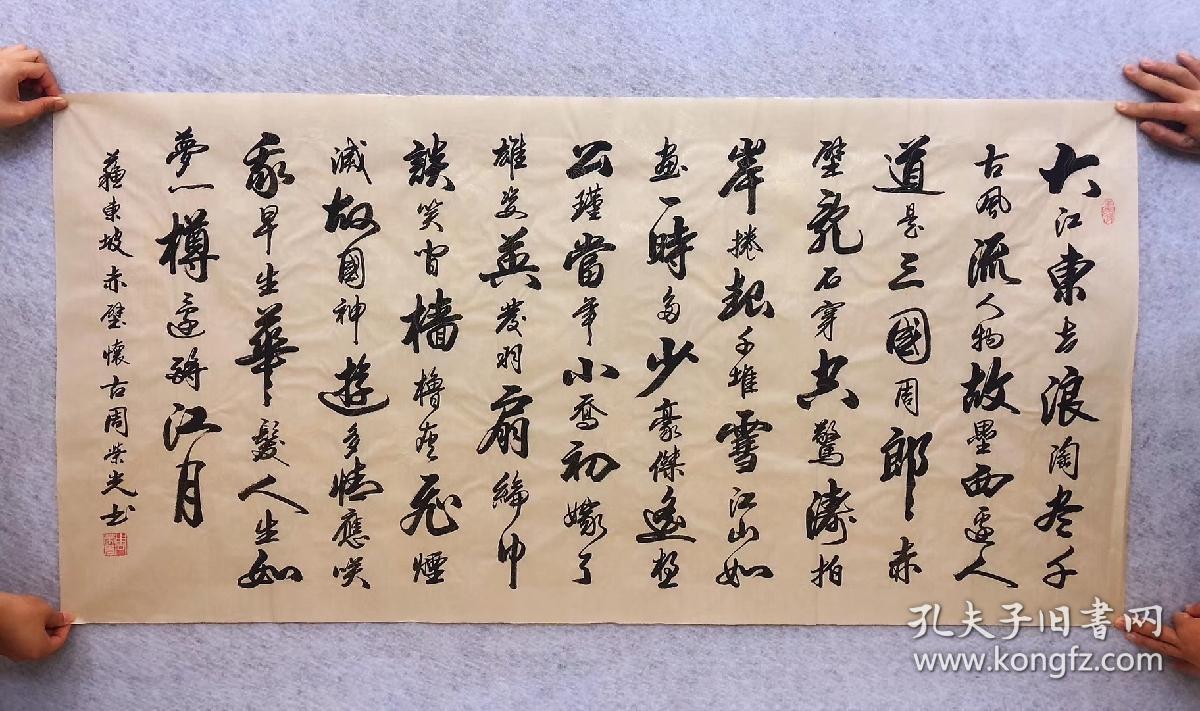 大江東去浪淘尽千
古風流人物故壘西邊人
道是三國周郎赤
壁乱石穿空驚濤拍
岸捲起千堆雪江山如
畫一時多少豪傑遙想
公瑾當年小喬初嫁了
雄姿英發羽扇綸巾
談笑間檣櫓灰飛煙
滅故國神遊多情應笑
我早生華髮人生如
夢一樽還酹江月
蘇東坡赤壁懷古周榮光书
孔夫子旧书网
www.kongfz.com